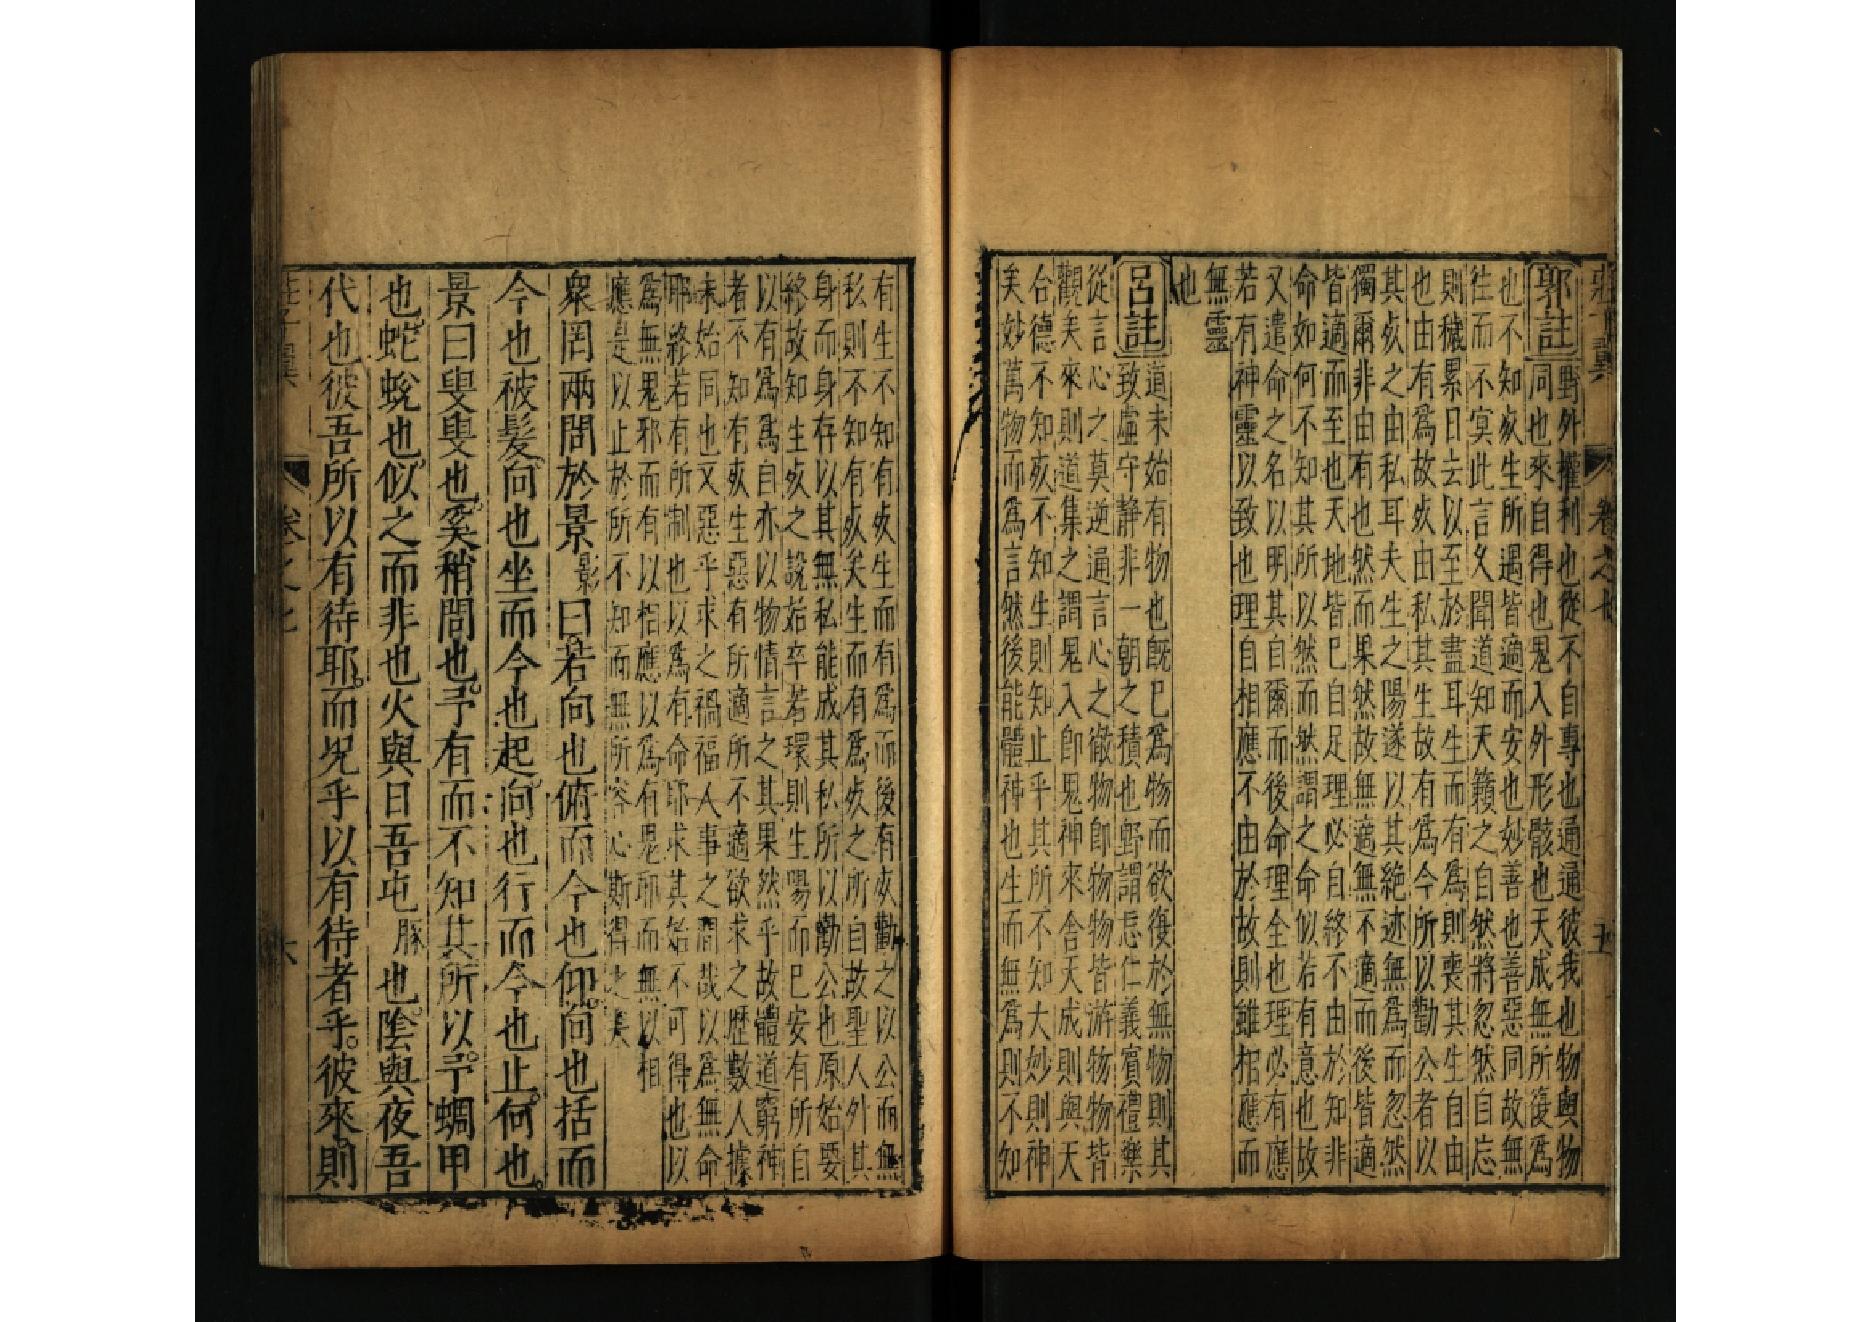 莊子翼 卷之七 五
郭註
野外權利也從不自專也通通彼我也物與物
同也來自得也鬼入外形骸也天成無所復為
也不知死生所遇皆適而安也妙善也善惡同故無
往而不冥此言久聞道知天籟之自然將忽然自忘
則穢累日去以至於盡耳生而有為則喪其生自由
也由有為故死由私其生故有為今所以勸公者以
其死之由私耳夫生之陽遂以其絕迹無為而忽然
獨爾非由有也然而果然故無適無不適而後皆適
皆適而至也天地皆已自足理必自終不由於知非
命如何不知其所以然而然謂之命似若有意也故
又遣命之名以明其自爾而後命理全也理必有應
若有神靈以致也理自相應不由於故則雖相應而
無靈
也
呂註
道未始有物也既已為物而欲復於無物則其
致虛守靜非一朝之積也野謂忘仁義賓禮樂
從言心之莫逆通言心之徹物即物物皆游物物皆
觀矣來則道集之謂鬼入即鬼神來舍天成則與天
合德不知死不知生則知止乎其所不知大妙則神
矣妙萬物而為言然後能體神也生而無為則不知
有生不知有死生而有為而後有死勸之以公而無
私則不知有死矣生而有為死之所自故聖人外其
身而身存以其無私能成其私所以勸公也原始要
終故知生死之說始卒若環則生陽而已安有所自
以有為為自亦以物情言之其果然乎故體道窮神
者不知有死生惡有所適所不適欲求之歷數人據
未始同也又惡乎求之禍福人事之間哉以為無命
耶終若有所制也以為有命耶求其始不可得也以
為無鬼邪而有以相應以為有鬼耶而無以相
應是以止於所不知而無所容心斯得之矣
眾罔兩問於景影曰若向也俯而今也仰向也括而
今也被髮向也坐而今也起向也行而今也止何也
景曰叟叟也奚稍問也予有而不知其所以予蜩甲
也蛇蛻也似之而非也火與日吾屯豚也陰與夜吾
代也彼吾所以有待耶而況乎以有待者乎彼來則
莊子翼 卷之七 六